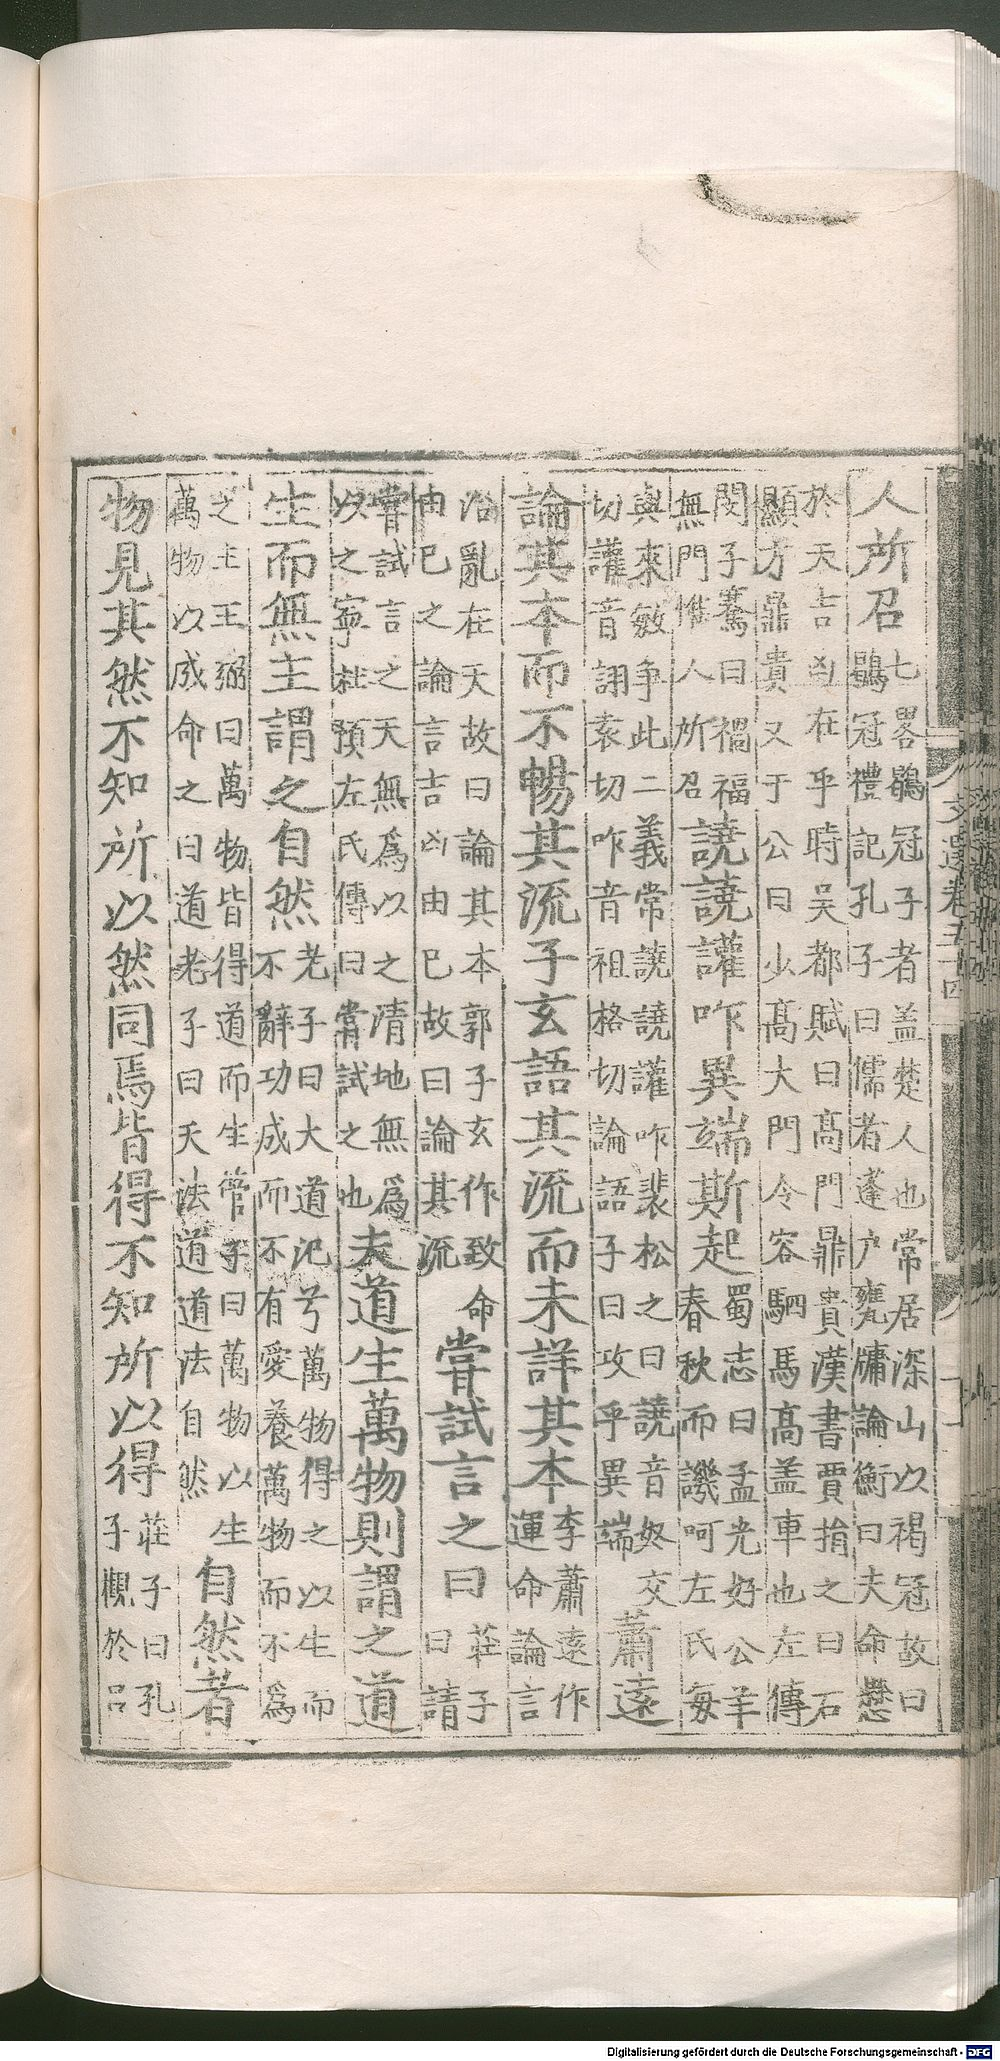 人所召七畧鶡冠子者盖楚人也常居深山以褐冠故曰
鶡冠禮記孔子曰儒者蓬户甕牖論衡曰夫命懸
於天吉凶在乎時吴都賦曰髙門鼎貴漢書賈捐之曰石
顯方鼎貴又于公曰少髙大門令容駟馬髙盖車也左傳
閔子騫曰禍福
無門惟人所召譊譊讙咋異端斯起蜀志曰孟光好公羊
春秋而譏呵左氏每
與來敏争此二義常譊譊讙咋裴松之曰譊音奴交
切讙音詡袁切咋音祖格切論語子曰攻乎異端蕭遠
論其本而不暢其流子玄語其流而未詳其本李蕭遠作
運命論言
治亂在天故曰論其本郭子玄作致命
由巳之論言吉凶由巳故曰論其流嘗試言之曰莊子
曰請
嘗試言之天無爲以之清地無爲
以之寧杜預左氏傳曰嘗試之也夫道生萬物則謂之道
生而無主謂之自然老子曰大道汜兮萬物得之以生而
不辭功成而不有愛養萬物而不爲
之主王弼曰萬物皆得道而生管子曰萬物以生
萬物以成命之曰道老子曰天法道道法自然自然者
物見其然不知所以然同焉皆得不知所以得莊子曰孔
子觀於呂
文選卷五十四
Digitalisierung gefördert durch die Deutsche Forschungsgemeinschaft - DFG